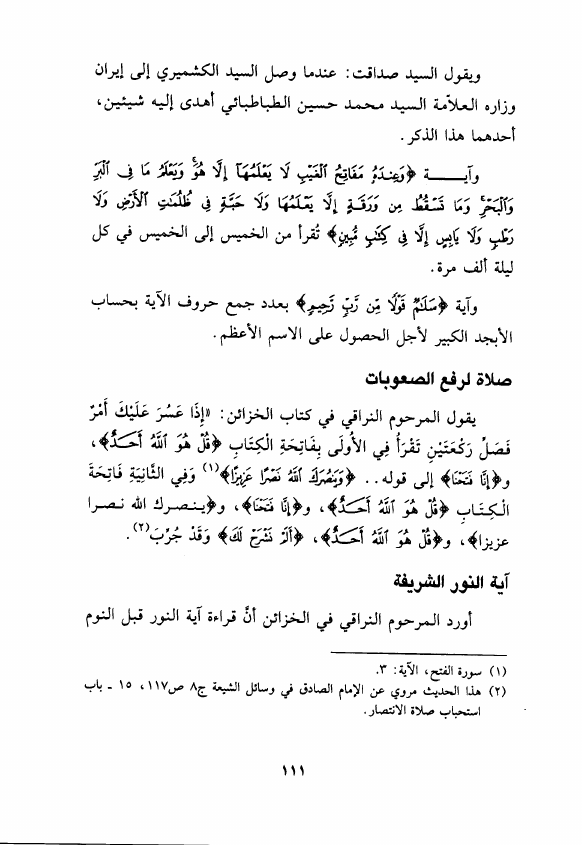 ويقول السيد صداقت: عندما وصل السيد الكشميري إلى إيران
وزاره العلاّمة السيد محمد حسين الطباطبائي أهدى إليه شيئين،
أحدهما هذا الذكر.
وآيـــــة ﴿وَعِندَهُ مَفَاتِحُ الْغَيْبِ لَا يَعْلَمُهَا إِلَّا هُوَ وَيَعْلَمُ مَا فِي الْبَرِّ
وَالْبَحْرِ وَمَا تَسْقُطُ مِن وَرَقَةٍ إِلَّا يَعْلَمُهَا وَلَا حَبَّةٍ فِي ظُلُمَاتِ الْأَرْضِ وَلَا
رَطْبٍ وَلَا يَابِسٍ إِلَّا فِي كِتَابٍ مُّبِينٍ﴾ تُقرأ من الخميس إلى الخميس في كل
ليلة ألف مرة.
وآية ﴿سَلَامٌ قَوْلًا مِّن رَّبٍّ رَّحِيمٍ﴾ بعدد جمع حروف الآية بحساب
الأبجد الكبير لأجل الحصول على الاسم الأعظم.
صلاة لرفع الصعوبات
يقول المرحوم النراقي في كتاب الخزائن: «إِذَا عَسُرَ عَلَيْكَ أَمْرٌ
فَصَلِّ رَكْعَتَيْنِ تَقْرَأُ فِي الأُولَى بِفَاتِحَةِ الْكِتَابِ ﴿قُلْ هُوَ اللَّهُ أَحَدٌ﴾،
و﴿إِنَّا فَتَحْنَا﴾ إلى قوله.. ﴿وَيَنصُرَكَ اللَّهُ نَصْرًا عَزِيزًا﴾(١) وَفِي الثَّانِيَةِ فَاتِحَةَ
الْكِتَابِ ﴿قُلْ هُوَ اللَّهُ أَحَدٌ﴾، و﴿إِنَّا فَتَحْنَا﴾، و﴿ينصرك الله نصرا
عزيزا﴾، و﴿قُلْ هُوَ اللَّهُ أَحَدٌ﴾، ﴿أَلَمْ نَشْرَحْ لَكَ﴾ وَقَدْ جُرِّبَ(٢).
آية النور الشريفة
أورد المرحوم النراقي في الخزائن أنَّ قراءة آية النور قبل النوم
(١) سورة الفتح، الآية: ٣.
(٢) هذا الحديث مروي عن الإمام الصادق في وسائل الشيعة ج٨ ص١١٧، ١٥ ـ باب
استحباب صلاة الانتصار.
١١١